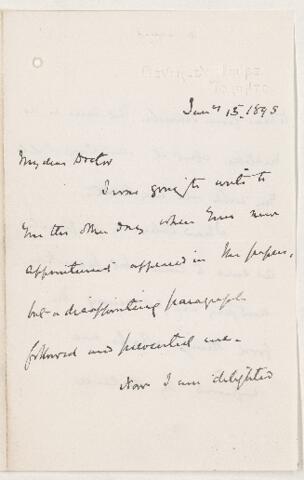 Jany 15. 1895
My dear Doctor
I was going to write to
you the other day when your new
appointment appeared in the papers,
but a disappointing paragraph
followed and prevented me.
Now I am delighted